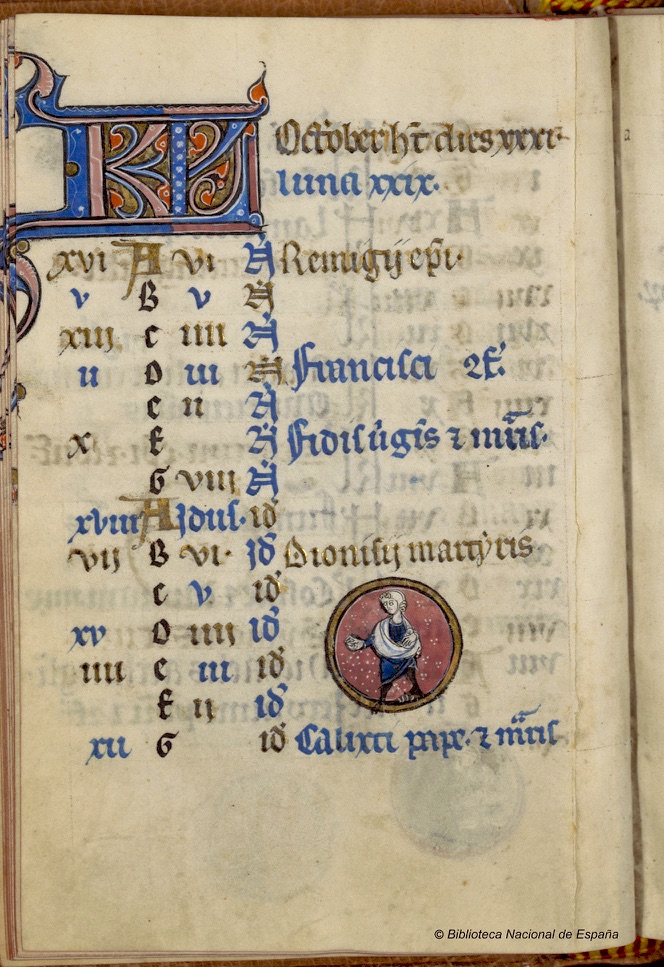 KL October hr̄ dies xxxi·
luna xxix·
xvi A vi N̄ Remigij ep̄i·
v B v N̄
xiii c iiii N̄
ii D iii N̄ Francisci 2f̄.
e ii N̄
x· f N̄ Fidis uirgīs ⁊ mr̄is·
G viii N̄
xviii A Jdus· id̄
vij B vi· Jd̄ Dionisij martyris
c v id̄
xv D iiii id̄
iiii e iii id̄
f ij id̄
xii G id̄ Calixti pape· ⁊ mr̄is·
© Biblioteca Nacional de España